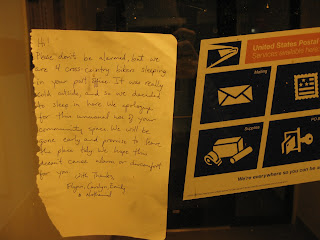 Hi!
Please don't be alarmed, but we
are 4 cross-country bikers sleeping
in your post office. It was really
cold outside, and so we decided
to sleep in here. We apologize
for this unusual use of your
community space. We will be
gone early and promise to leave
the place tidy. We hope this
doesn't cause alarm or discomfort
for you.
With Thanks,
Ryan, Carolyn, Emily,
& Nathaniel
United States Postal
Services available here
Mailing
Supplies
PO B
We're everywhere so you can be a